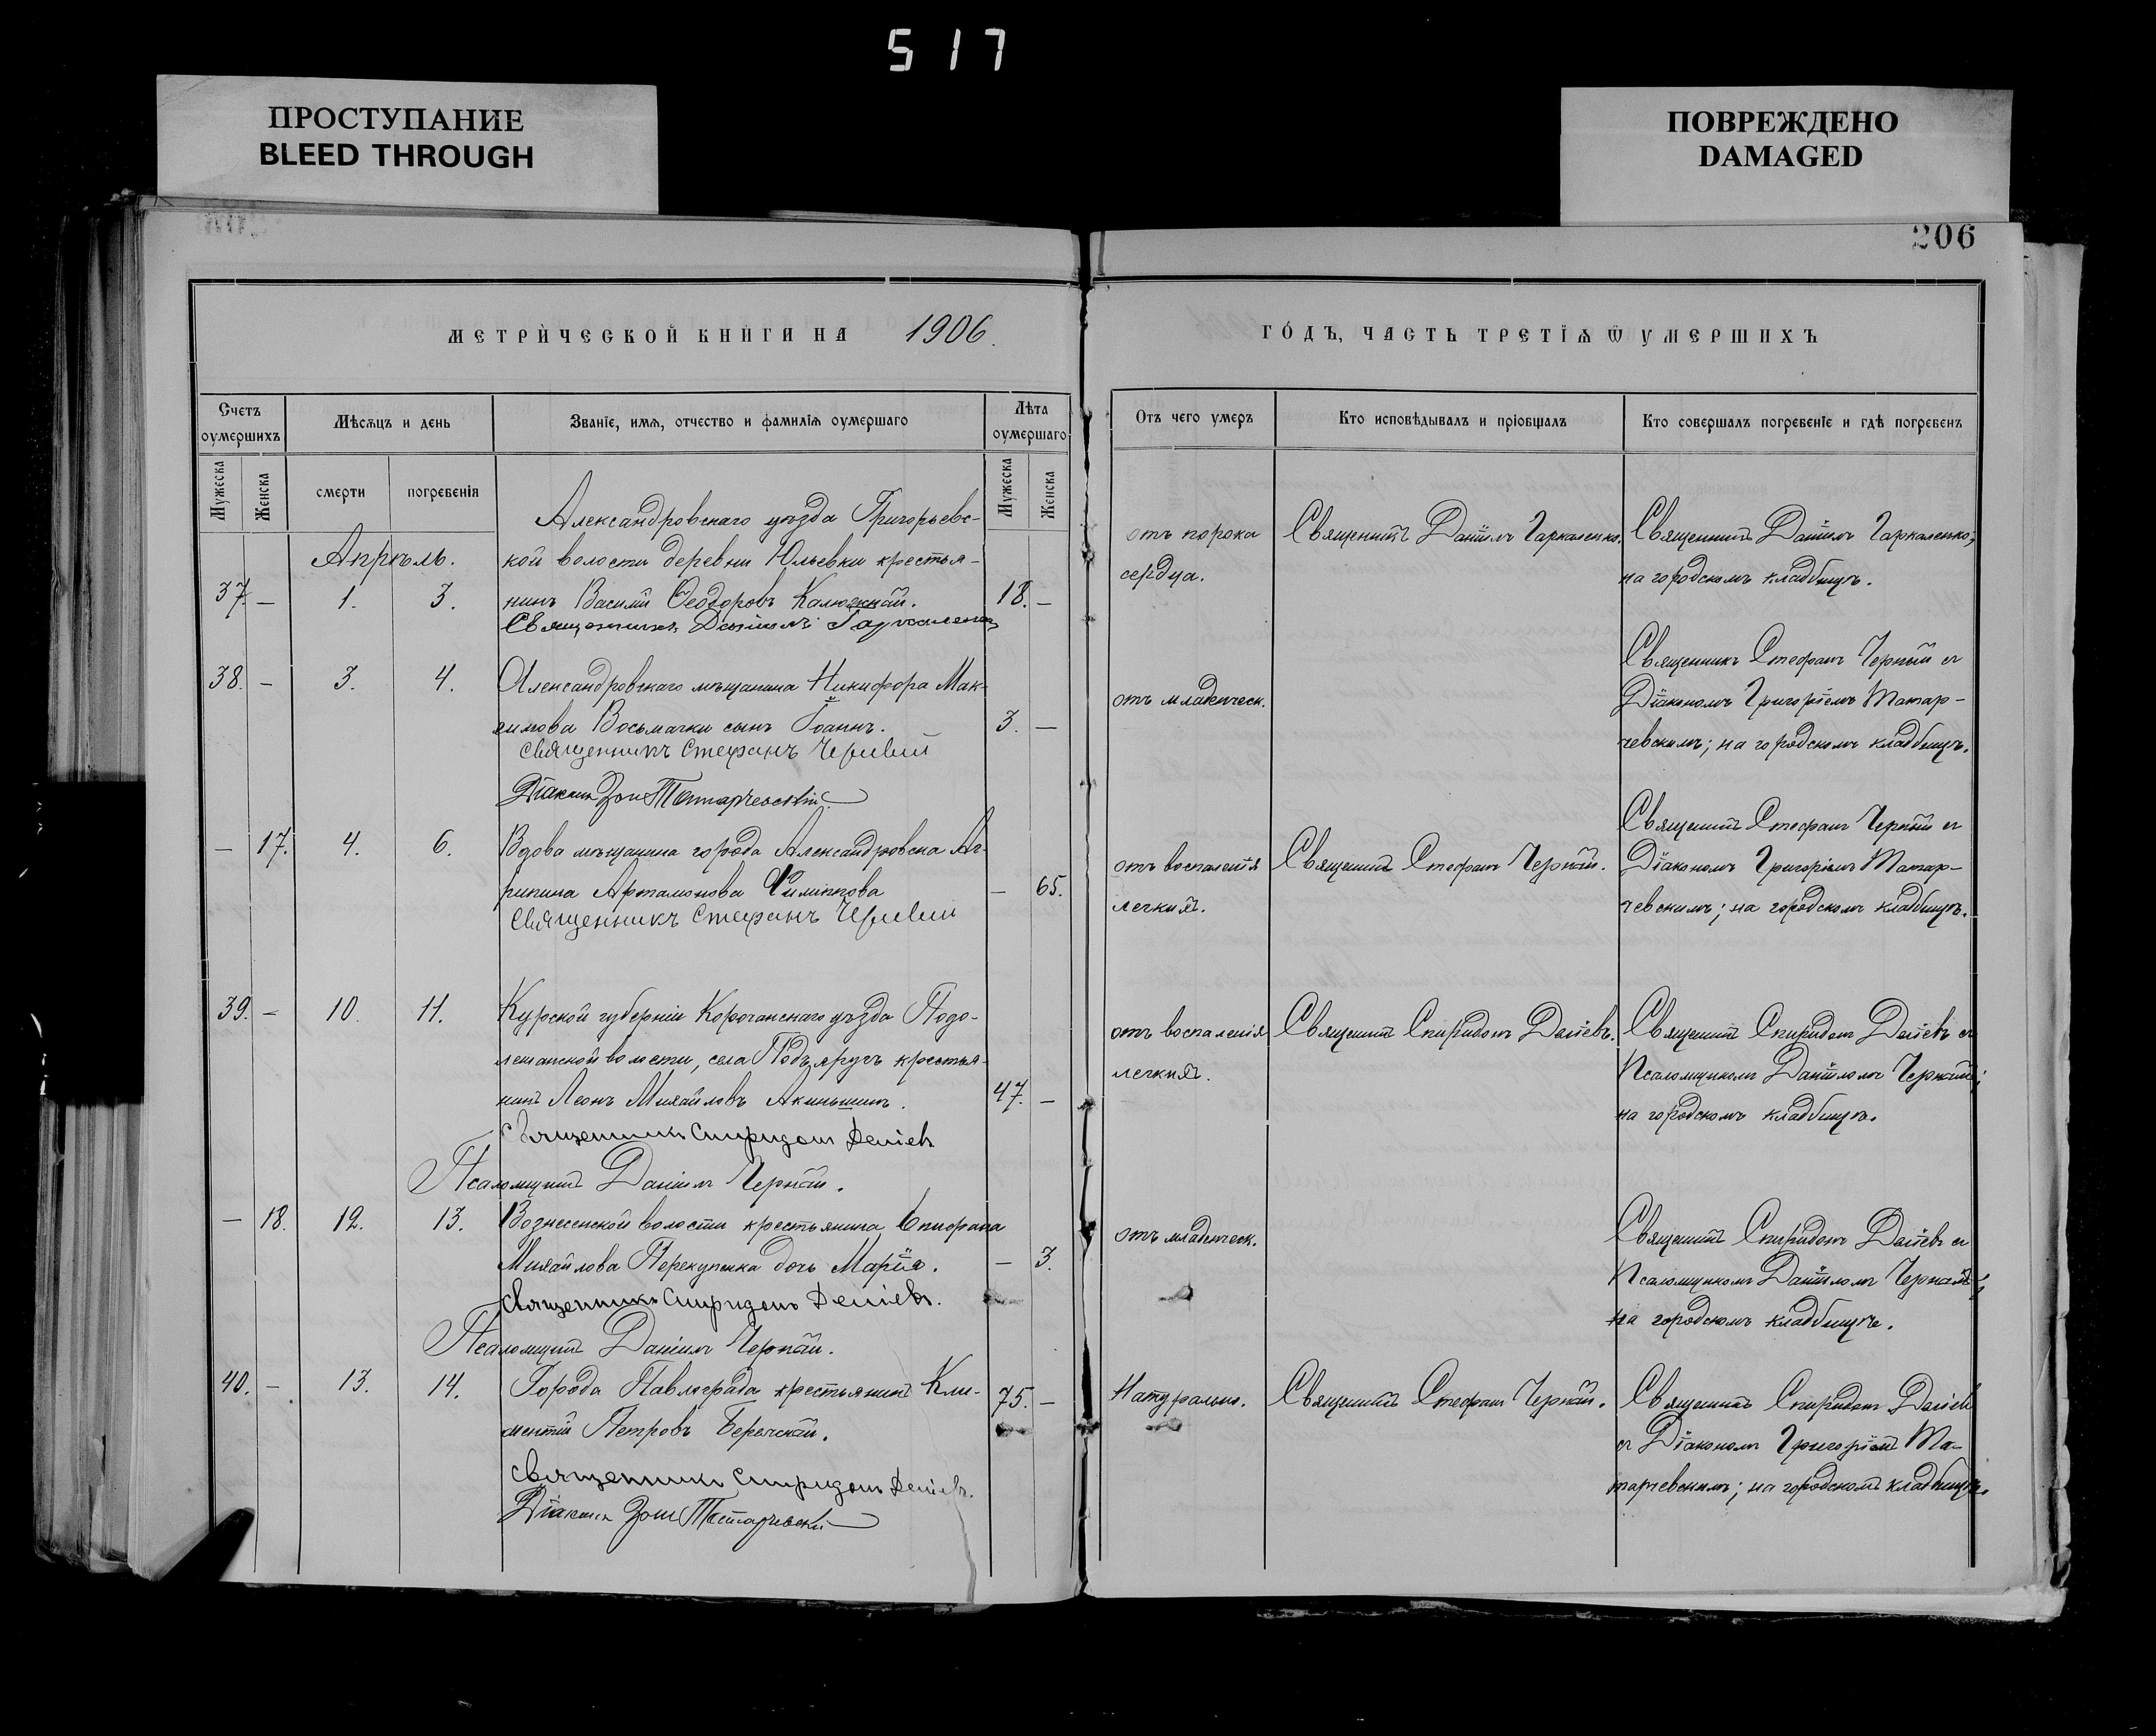 517
ПРОСТУПАНИЕ
BLEED THROUGH
ПОВРЕЖДЕНО
DAMAGED
206
МЕТРИЧЕСКОЙ КНИГИ НА 1906.
ГОДЪ, ЧАСТЬ ТРЕТІѦ Ѿ УМЕРШИХЪ
Счетъ оумершихъ
Мѣсѧцъ и день
Званіе, имѧ, отчество и фамиліѧ оумершаго
Лѣта оумершаго
Мужеска
Женска
смерти
погребеніѧ
Мужеска
Женска
Отъ чего умеръ
Кто исповѣдывалъ и пріобщалъ
Кто совершалъ погребеніе и гдѣ погребенъ
Апрѣль.
Александровскаго уѣзда Григорьевс-
кой волости деревни Юльевки крестья-
37. — 1. 3. нинъ Василій Ѳеодоровъ Калюжный. 18. —
Священникъ Даніилъ Гаркаленко
отъ порока
сердца.
Священникъ Даніилъ Гаркаленко.
Священникъ Даніилъ Гаркаленко;
на городскомъ кладбищѣ.
38. — 3. 4. Александровскаго мѣщанина Никифора Мак-
симова Восьмачки сынъ Іоаннъ. 3. —
Священникъ Стефанъ Черный
Діаконъ Татарчевскій
отъ младенческ.
Священникъ Стефанъ Черный съ
Діакономъ Григоріемъ Татар-
чевскимъ; на городскомъ кладбищѣ.
— 17. 4. 6. Вдова мѣщанина города Александровска Аг-
рипина Артамонова Филиппова — 65.
Священникъ Стефанъ Черный
отъ воспаленія
легкихъ.
Священникъ Стефанъ Черный.
Священникъ Стефанъ Черный съ
Діакономъ Григоріемъ Татар-
чевскимъ; на городскомъ кладбищѣ.
39. — 10. 11. Курской губерніи Корочанскаго уѣзда Подо-
лешанской волости, села Подъяругъ крестья-
нинъ Леонъ Михайловъ Акиньшинъ. 47. —
Священникъ Спиридонъ Деліевъ
Псаломщикъ Даніилъ Черный.
отъ воспаленія
легкихъ.
Священникъ Спиридонъ Деліевъ.
Священникъ Спиридонъ Деліевъ съ
Псаломщикомъ Даніиломъ Чернымъ;
на городскомъ кладбищѣ.
— 18. 12. 13. Вознесенской волости крестьянина Епифана
Михайлова Перекупенка дочь Марія. — 3.
Священникъ Спиридонъ Деліевъ.
Псаломщикъ Даніилъ Черный.
отъ младенческ.
Священникъ Спиридонъ Деліевъ съ
Псаломщикомъ Даніиломъ Чернымъ;
на городскомъ кладбищѣ.
40. — 13. 14. Города Павлограда крестьянинъ Кли-
ментій Петровъ Бережный. 75. —
Священникъ Спиридонъ Деліевъ.
Діаконъ Татарчевскій
Натурально.
Священникъ Стефанъ Черный.
Священникъ Спиридонъ Деліевъ
съ Діакономъ Григоріемъ Та-
тарчевскимъ; на городскомъ кладбищѣ.